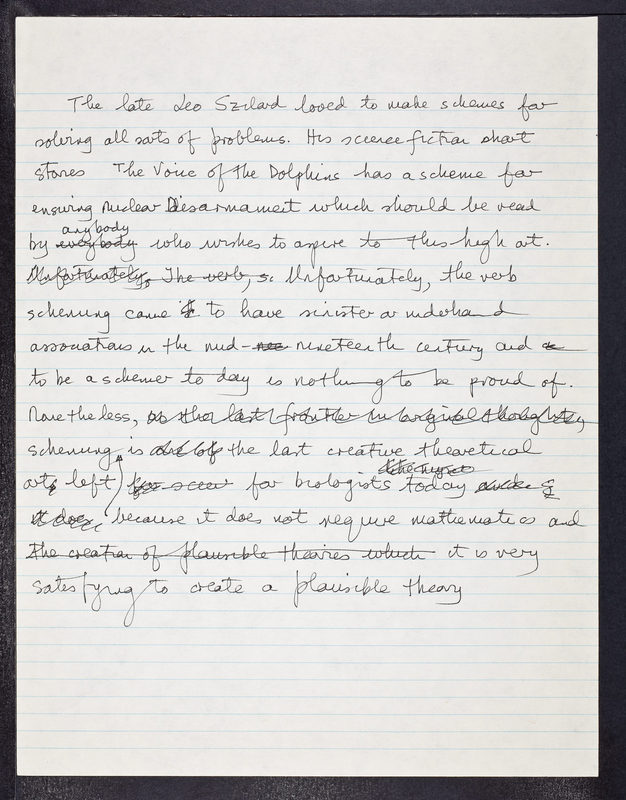 The late Leo Szilard loved to make schemes for
solving all sorts of problems. His science fiction short
stories The Voice of the Dolphins has a scheme for
ensuring nuclear Disarmament which should be read
anybody
by everybody who wishes to aspire to this high art.
Unfortunately, The verb, s. Unfortunately, the verb
scheming came to have sinister or underhand
associations in the mid- nineteenth century and
to be a schemer to day is nothing to be proud of.
None the less, as the last frontier in original thought,
scheming is the last creative theoretical
art left for biologists today
it does, because it does not require mathematics and
the creation of plausible theories which it is very
satisfying to create a plausible theory